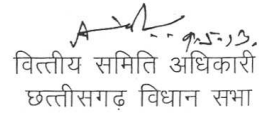 9.5.13.
वित्तीय समिति अधिकारी
छत्तीसगढ़ विधान सभा